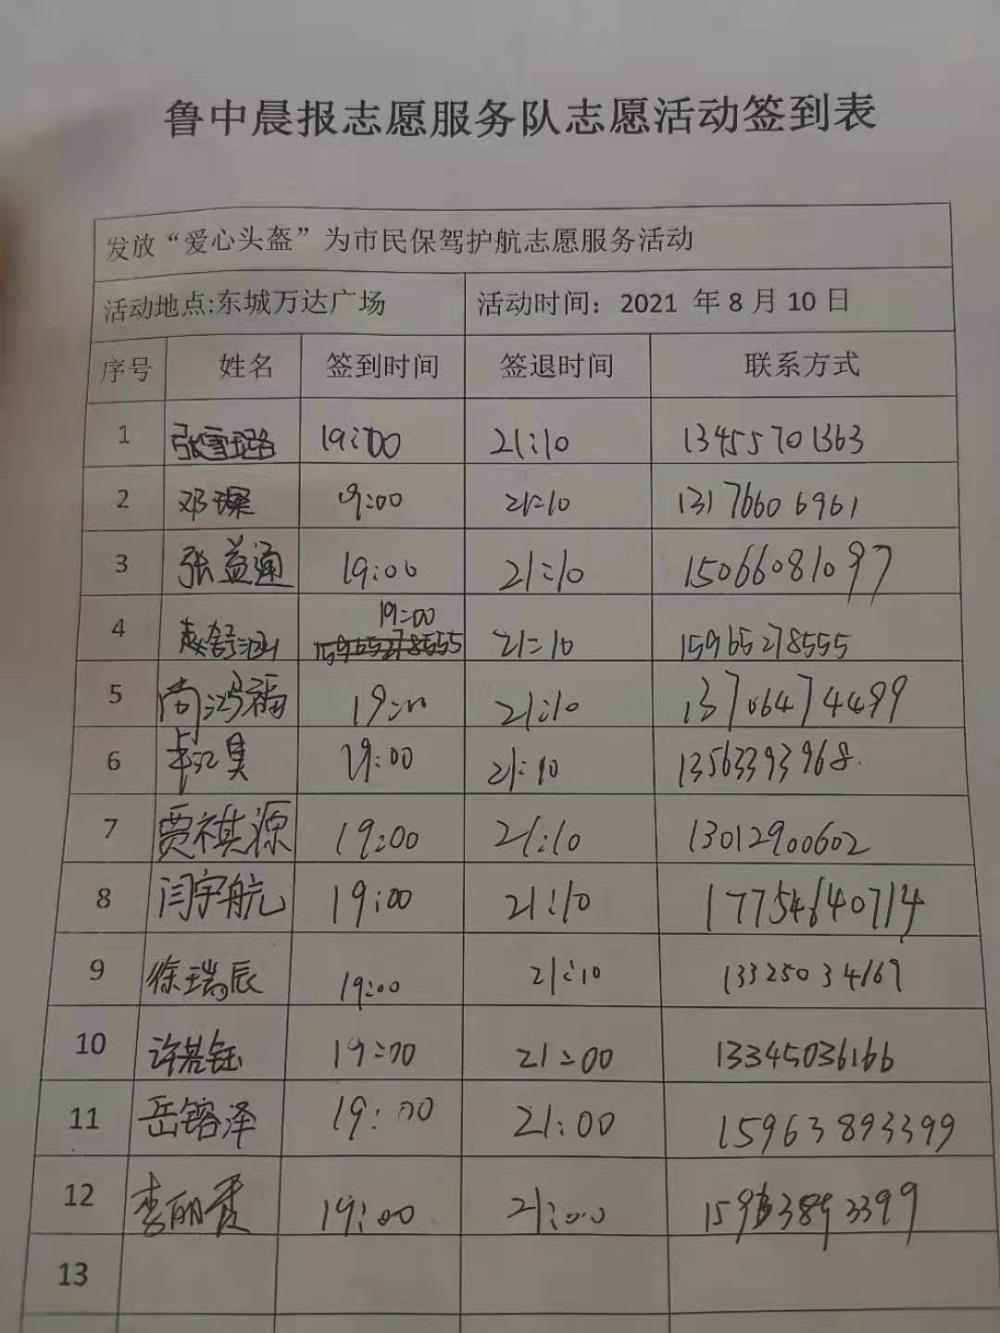 鲁中晨报志愿服务队志愿活动签到表
发放“爱心头盔”为市民保驾护航志愿服务活动
活动地点:东城万达广场 活动时间：2021 年 8 月 10 日
序号 姓名 签到时间 签退时间 联系方式
1 张雪璐 19:00 21:10 13455701363
2 邓璨 19:00 21:10 13176606961
3 张益通 19:00 21:10 15066081097
4 19:00 21:10 15965278555
5 尚鸿福 19:00 21:10 13706474499
6 19:00 21:10 13563393968
7 贾祺源 19:00 21:10 13012900602
8 闫宇航 19:00 21:10 17754640714
9 徐瑞辰 19:00 21:10 13325034169
10 19:00 21:00 13345036166
11 岳镕泽 19:00 21:00 15963893399
12 李丽霞 19:00 21:00 15963893399
13